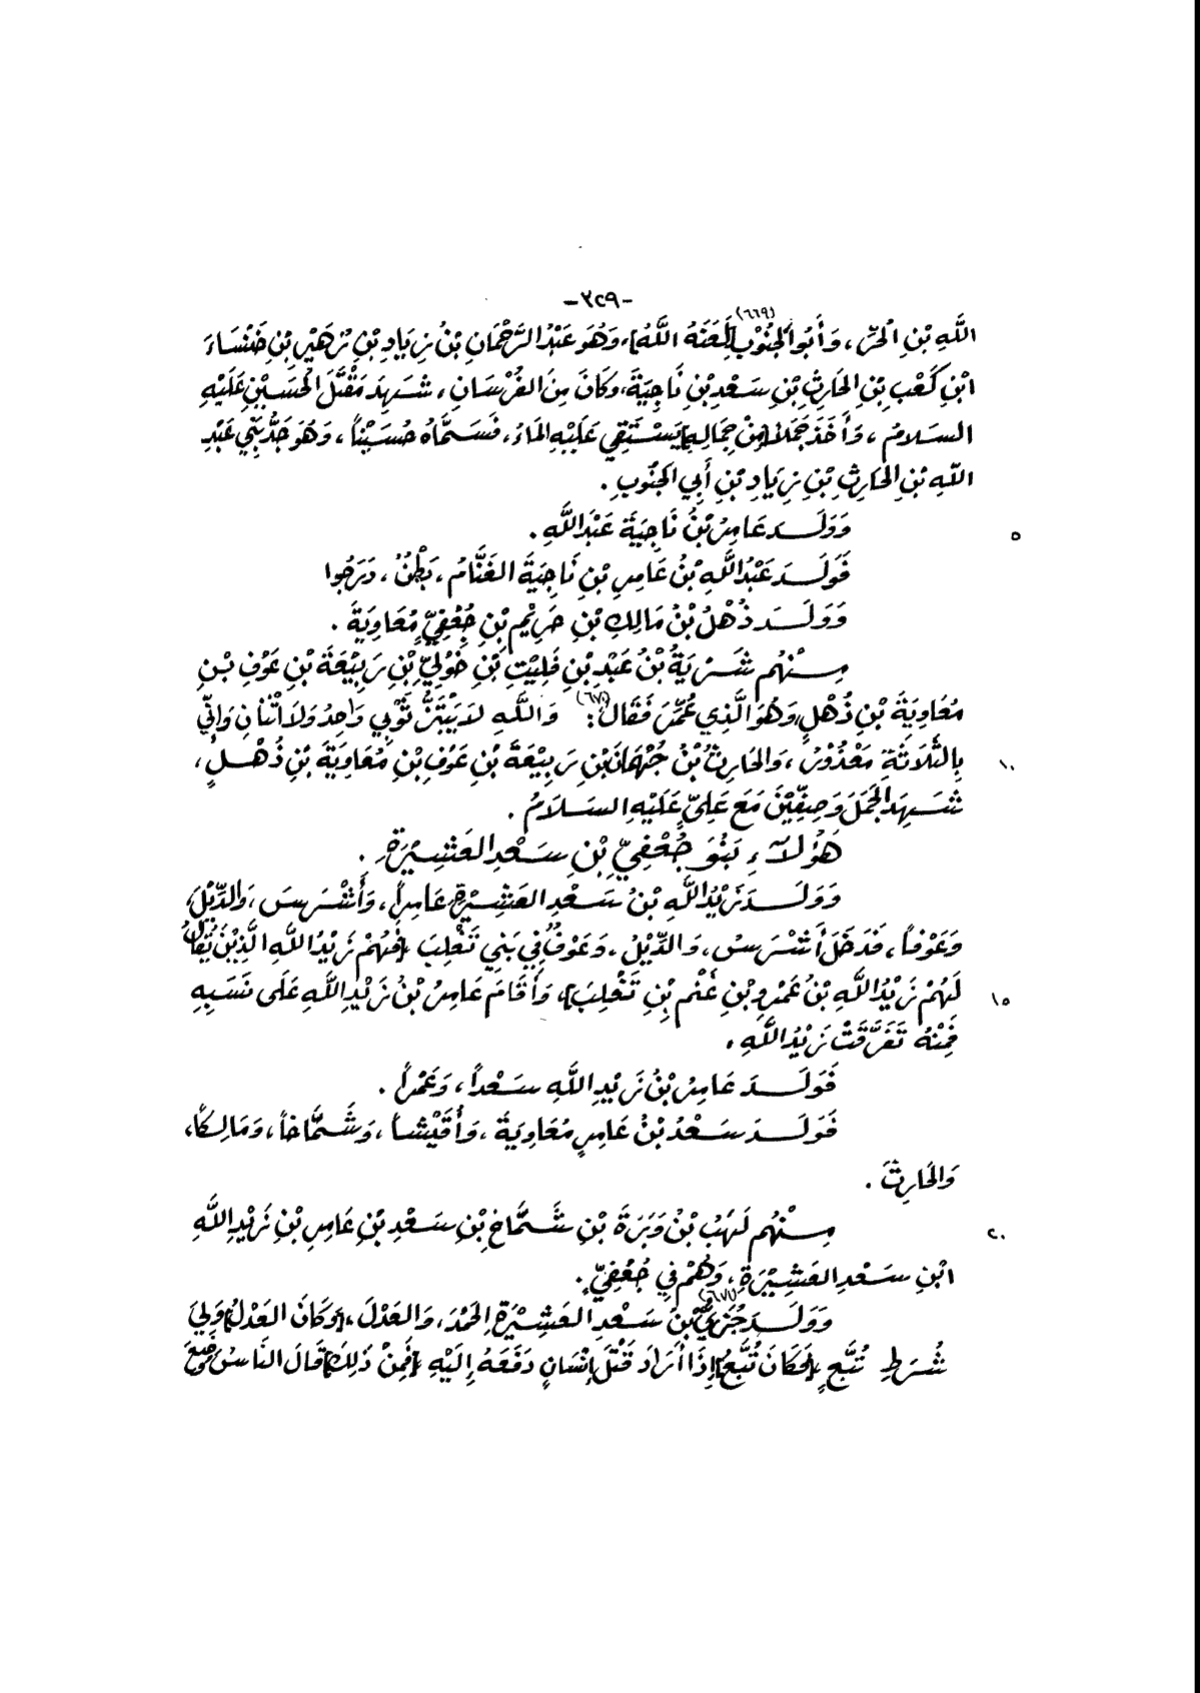 -٣٢٩-
اللَّهِ بْنِ الْحُرِّ، وَأَبُو الجَنُوْبِ (٦٦٩) [لَعَنَهُ اللَّهُ]، وَهُوَ عَبْدُ الرَّحْمَانِ بْنُ زِيَادِ بْنِ زُهَيْرِ بْنِ خَنْسَاءَ
ابْنِ كَعْبِ بْنِ الحَارِثِ بْنِ سَعْدِ بْنِ نَاجِيَةَ، وَكَانَ مِنَ الفُرْسَانِ، شَهِدَ مَقْتَلَ الحُسَيْنِ عَلَيْهِ
السَلامُ، وَأَخَذَ جَمَلاً [مِنْ جِمَالِهِ] يَسْتَقِي عَلَيْهِ المَاءَ، فَسَمَّاهُ حُسَيْناً، وَهُوَ جَدُّ بَنِي عَبْدِ
اللَّهِ بْنِ الحَارِثِ بْنِ زِيَادِ بْنِ أَبِي الجَنُوْبِ.
وَوَلَــدَ عَامِرُ بْنُ نَاجِيَةَ عَبْدَ اللَّهِ. ٥
فَوَلَــدَ عَبْدُ اللَّهِ بْنُ عَامِرِ بْنِ نَاجِيَةَ الغَنَّامَ، بَطْنٌ، دَرَجُوا
وَوَلَــدَ ذُهْلُ بْنُ مَالِكِ بْنِ حَرِيْمِ بْنِ جُعْفِيٍّ مُعَاوِيَةَ.
مِــنْهُم شَرْيَةُ بْنُ عَبْدِ بْنِ قَلِيْتِ بْنِ خَوْلِيِّ بْنِ رَبِيْعَةَ بْنِ عَوْفِ بْنِ
مُعَاوِيَةَ بْنِ ذُهْلٍ، وَهُوَ الَّذِي عُمِّرَ فَقَالَ (٦٧٠): وَاللَّهِ لاَ يَبْتَزُّ ثَوْبِي وَاحِدٌ وَلاَ اثْنَانِ وَإِنِّي
بِالثَّلاَثَةِ مَعْذُوْرٌ، وَالحَارِثُ بْنُ جُهْمَانَ بْنِ رَبِيْعَةَ بْنِ عَوْفِ بْنِ مُعَاوِيَةَ بْنِ ذُهْــلٍ، ١٠
شَــهِدَ الجَمَلَ وَصِفِّيْنَ مَعَ عَلِيٍّ عَلَيْهِ السَــلاَمُ.
هَؤُلاَءِ بَنُوَ جُعْفِيِّ بْنِ سَــعْدِ العَشِيْرَةِ.
وَوَلَــدَ زَيْدُ اللَّهِ بْنُ سَــعْدِ العَشِيْرَةِ عَامِراً، وَأَشْرَسَ، وَالدِّيْلَ،
وَعَوْفاً، فَدَخَلَ أَشْرَسُ، وَالدِّيْلُ، وَعَوْفٌ فِي بَنِي تَغْلِبَ [فَهُمْ زَيْدُ اللَّهِ الَّذِيْنَ يُقَالُ
لَهُمْ زَيْدُ اللَّهِ بْنُ عَمْرِو بْنِ غَنْمِ بْنِ تَغْلِبَ]، وَأَقَامَ عَامِرُ بْنُ زَيْدِ اللَّهِ عَلَى نَسَبِهِ ١٥
فَمِنْهُ تَفَرَّقَتْ زَيْدُ اللَّهِ.
فَوَلَــدَ عَامِرُ بْنُ زَيْدِ اللَّهِ سَــعْداً، وَعَمْراً.
فَوَلَــدَ سَــعْدُ بْنُ عَامِرٍ مُعَاوِيَةَ، وَأُقَيْشاً، وَشَــمَّاخاً، وَمَالِكاً،
وَالحَارِثَ.
مِــنْهُم لَهَبُ بْنُ وَبَرَةَ بْنِ شَــمَّاخِ بْنِ سَــعْدِ بْنِ عَامِرِ بْنِ زَيْدِ اللَّهِ ٢٠
ابْنِ سَــعْدِ العَشِيْرَةِ، وَهُمْ فِي جُعْفِيٍّ.
وَوَلَــدَ جُزَيُّ (٦٧١) بْنُ سَــعْدِ العَشِيْرَةِ الحَمْدَ، وَالعَدْلَ، [وَكَانَ العَدْلُ] وَلِيَ
شُــرَطِ تُبَّعٍ [فَكَانَ تُبَّعٌ] إِذَا أَرَادَ قَتْلَ إِنْسَانٍ دَفَعَهُ إِلَيْهِ [فَمِنْ ذَلِكَ] قَالَ النَاسُ وُضِعَ